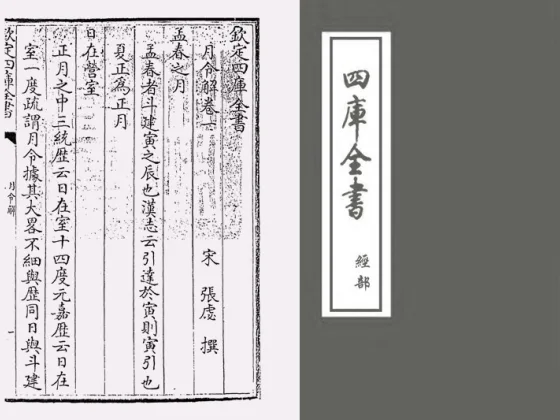 欽定四庫全書
月令解卷一
宋 張虙 撰
孟春之月
孟春者斗建寅之辰也漢志云引達於寅則寅引也
夏正為正月
日在營室
正月之中三統歴云日在室十四度元嘉歴云日在
室一度疏謂月令據其大畧不細與歴同日與斗建
欽定四庫全書
月令解
一
四庫全書
經部